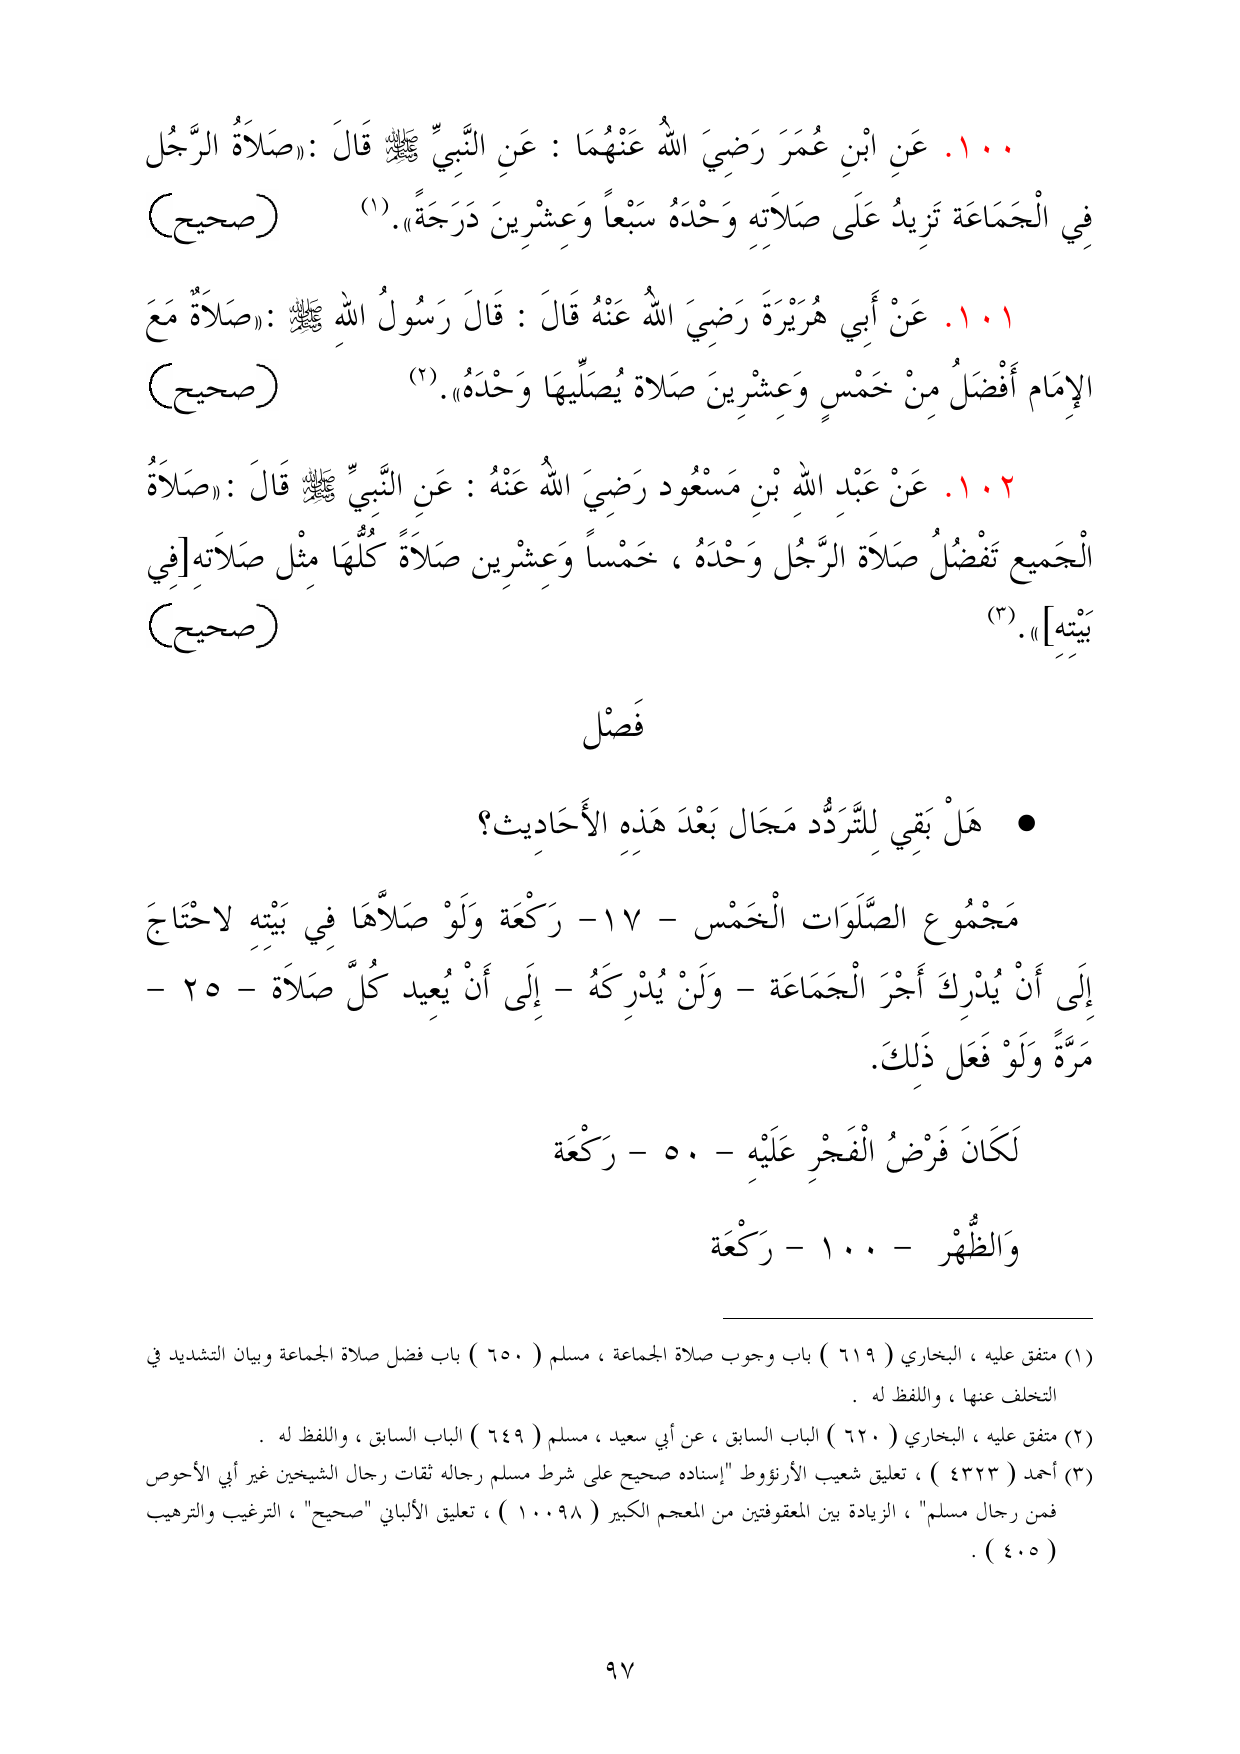 ١٠٠. عَنِ ابْنِ عُمَرَ رَضِيَ اللهُ عَنْهُمَا : عَنِ النَّبِيِّ ﷺ قَالَ :«صَلاَةُ الرَّجُل
فِي الْجَمَاعَة تَزِيدُ عَلَى صَلاَتِهِ وَحْدَهُ سَبْعاً وَعِشْرِينَ دَرَجَةً».(١) (صحيح)
١٠١. عَنْ أَبِي هُرَيْرَةَ رَضِيَ اللهُ عَنْهُ قَالَ : قَالَ رَسُولُ اللهِ ﷺ :«صَلاَةٌ مَعَ
الإِمَام أَفْضَلُ مِنْ خَمْسٍ وَعِشْرِينَ صَلاة يُصَلِّيهَا وَحْدَهُ».(٢) (صحيح)
١٠٢. عَنْ عَبْدِ اللهِ بْنِ مَسْعُود رَضِيَ اللهُ عَنْهُ : عَنِ النَّبِيِّ ﷺ قَالَ :«صَلاَةُ
الْجَمِيع تَفْضُلُ صَلاَة الرَّجُل وَحْدَهُ ، خَمْساً وَعِشْرِين صَلاَةً كُلُّهَا مِثْل صَلاَتهِ[فِي
بَيْتِهِ]».(٣) (صحيح)
فَصْل
● هَلْ بَقِي لِلتَّرَدُّد مَجَال بَعْدَ هَذِهِ الأَحَادِيث؟
مَجْمُوع الصَّلَوَات الْخَمْس – ١٧– رَكْعَة وَلَوْ صَلاَّهَا فِي بَيْتِهِ لاحْتَاجَ
إِلَى أَنْ يُدْرِكَ أَجْرَ الْجَمَاعَة – وَلَنْ يُدْرِكَهُ – إِلَى أَنْ يُعِيد كُلَّ صَلاَة – ٢٥ –
مَرَّةً وَلَوْ فَعَل ذَلِكَ.
لَكَانَ فَرْضُ الْفَجْرِ عَلَيْهِ – ٥٠ – رَكْعَة
وَالظُّهْر – ١٠٠ – رَكْعَة
(١) متفق عليه ، البخاري ( ٦١٩ ) باب وجوب صلاة الجماعة ، مسلم ( ٦٥٠ ) باب فضل صلاة الجماعة وبيان التشديد في
التخلف عنها ، واللفظ له .
(٢) متفق عليه ، البخاري ( ٦٢٠ ) الباب السابق ، عن أبي سعيد ، مسلم ( ٦٤٩ ) الباب السابق ، واللفظ له .
(٣) أحمد ( ٤٣٢٣ ) ، تعليق شعيب الأرنؤوط "إسناده صحيح على شرط مسلم رجاله ثقات رجال الشيخين غير أبي الأحوص
فمن رجال مسلم" ، الزيادة بين المعقوفتين من المعجم الكبير ( ١٠٠٩٨ ) ، تعليق الألباني "صحيح" ، الترغيب والترهيب
( ٤٠٥ ) .
٩٧